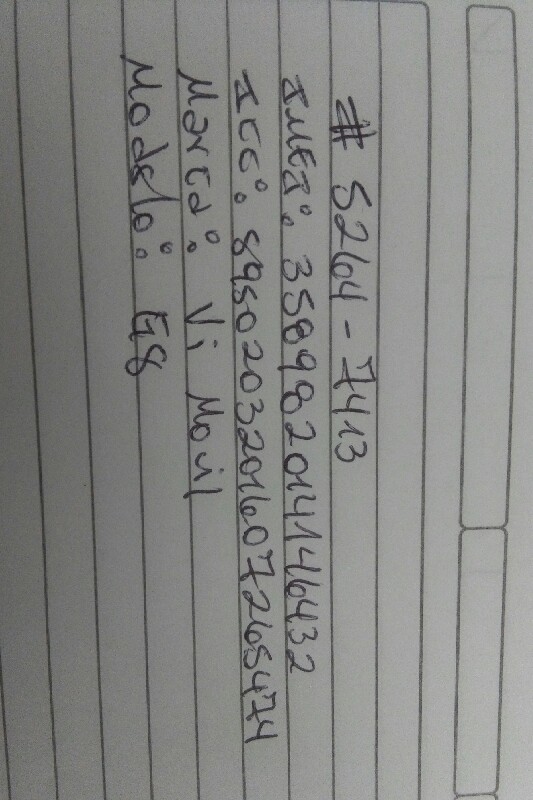 # 5264-7413
IMEI: 358982014146432
ICC: 8950203201607265474
Marca: Vi Movil
Modelo: G8